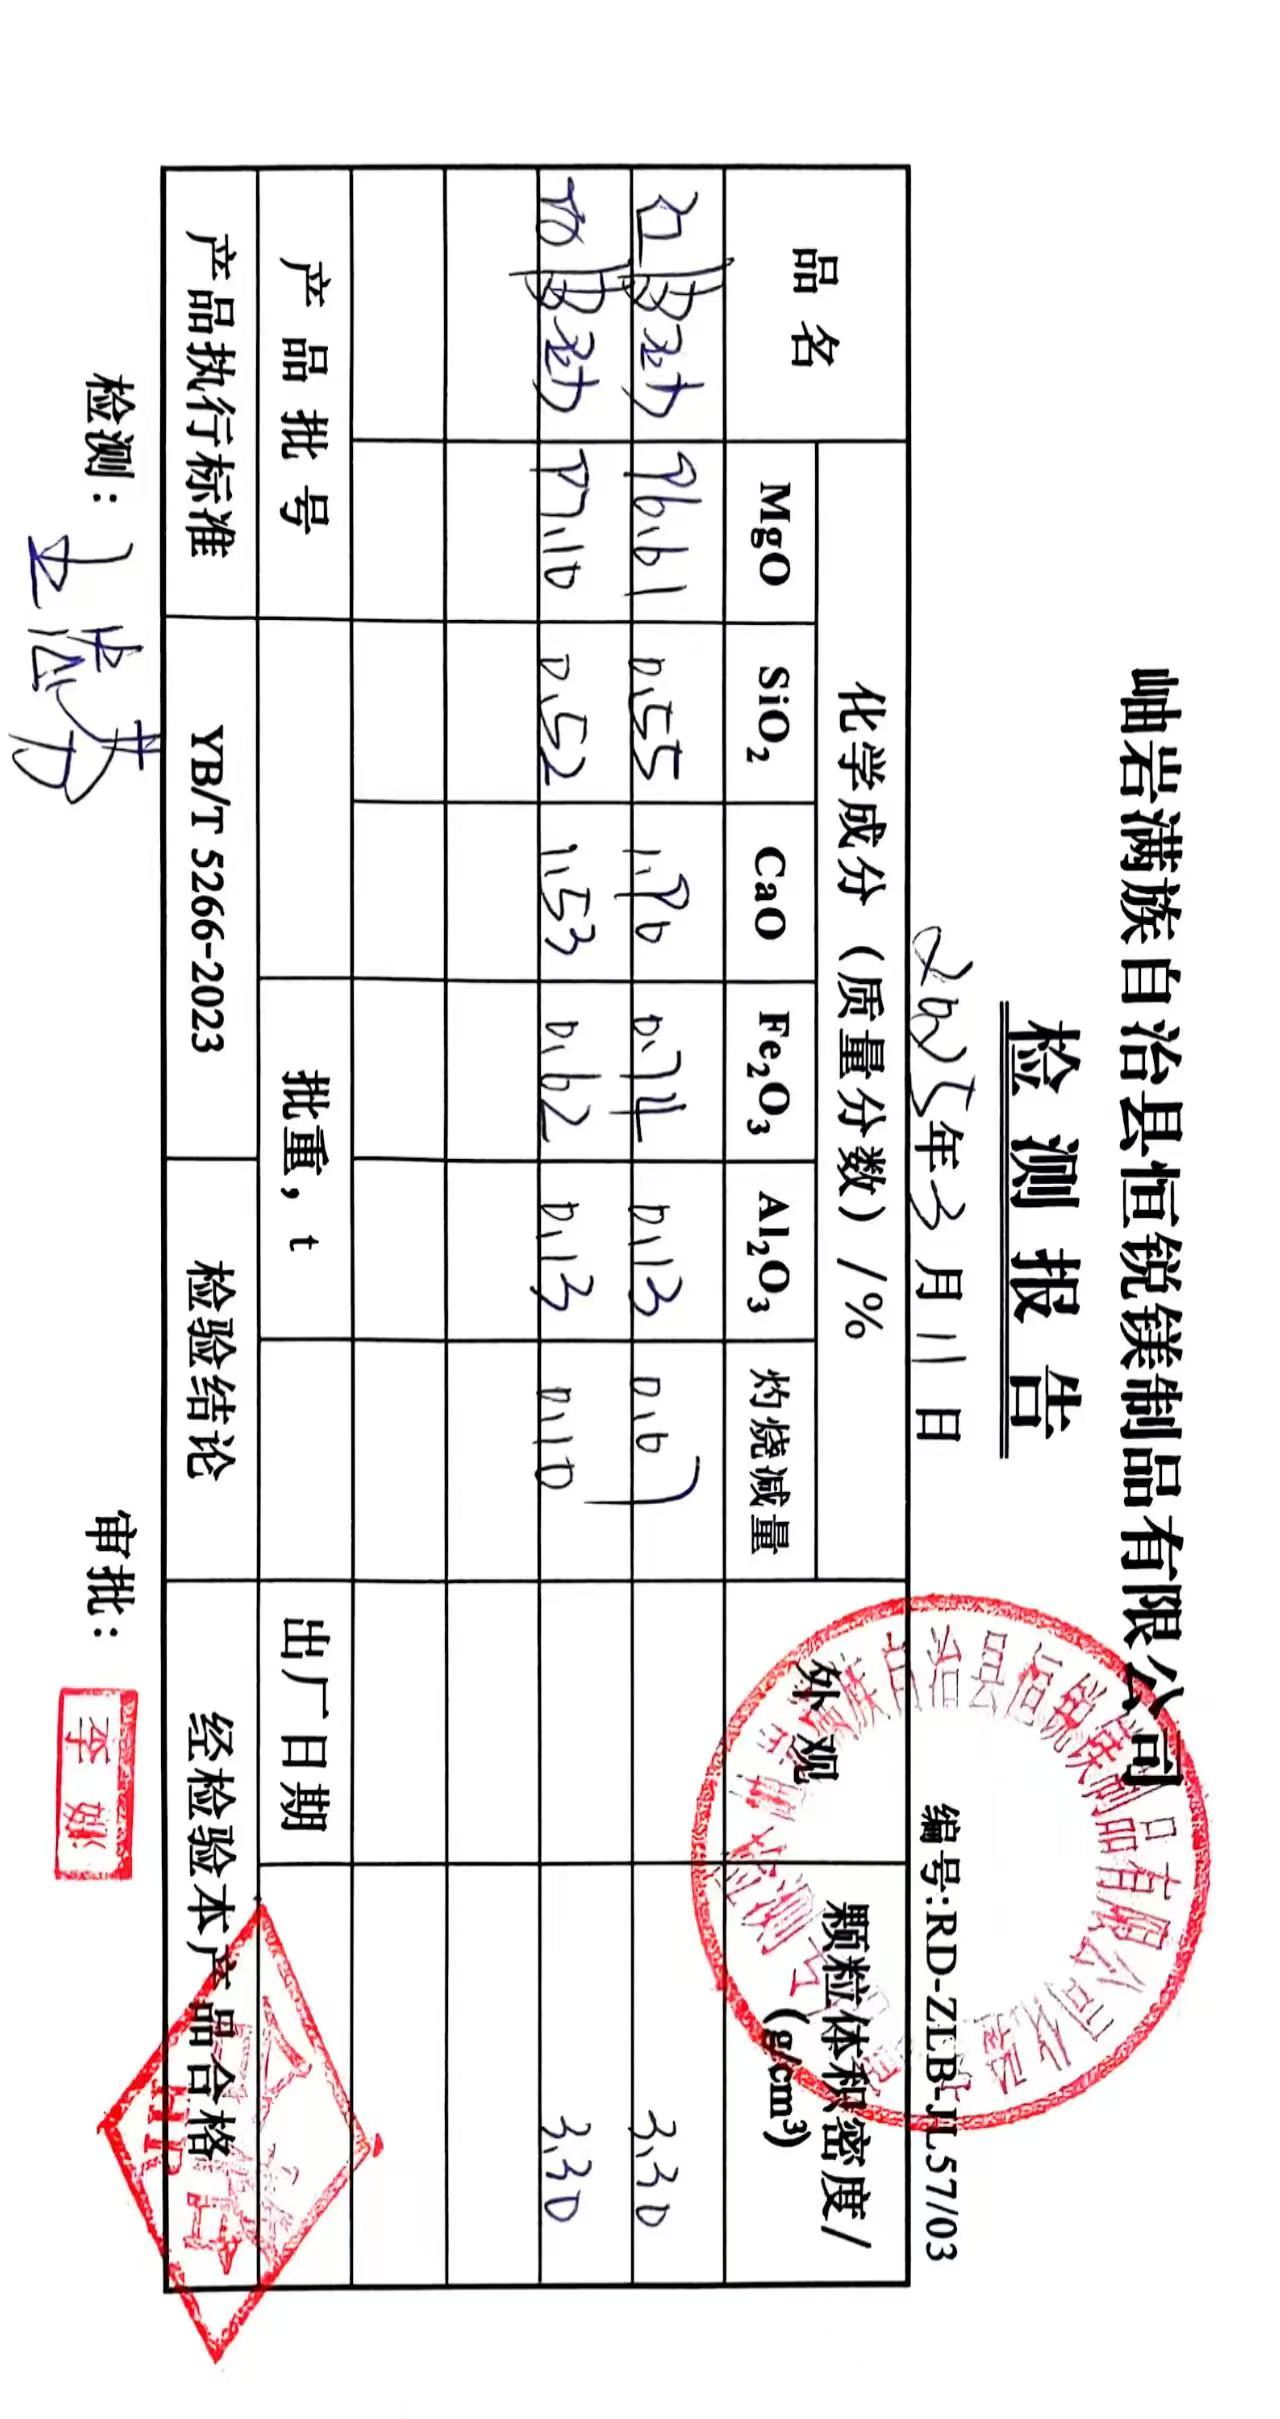 岫岩满族自治县恒锐镁制品有限公司
检测报告
2025年3月11日 编号:RD-ZLB-JL57/03
品名 化学成分（质量分数）/% 外观 颗粒体积密度/(g/cm³)
MgO SiO₂ CaO Fe₂O₃ Al₂O₃ 灼烧减量
96.61 0.55 1.90 0.74 0.13 0.07 3.30
97.10 0.52 1.53 0.62 0.13 0.10 3.30
产品批号 批重，t 出厂日期
产品执行标准 YB/T 5266-2023 检验结论 经检验本产品合格
检测： 审批： 李
族自治县恒锐镁制品有限公司化验
检测